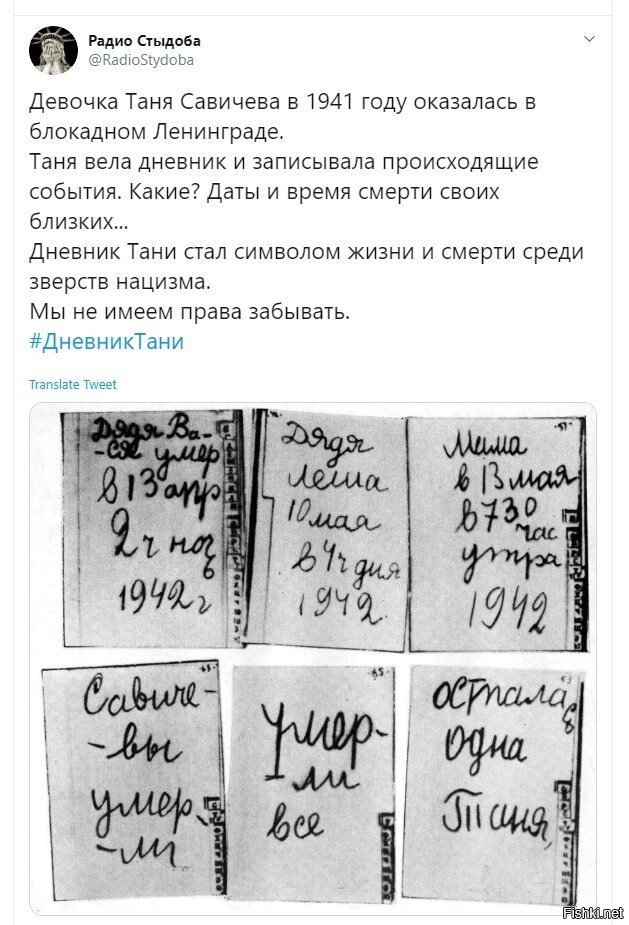 Радио Стыдоба
@RadioStydoba
Девочка Таня Савичева в 1941 году оказалась в
блокадном Ленинграде.
Таня вела дневник и записывала происходящие
события. Какие? Даты и время смерти своих
близких...
Дневник Тани стал символом жизни и смерти среди
зверств нацизма.
Мы не имеем права забывать.
#ДневникТани
Translate Tweet
Дядя Ва-
-ся умер
в 13 апр
2 ч ноч
ь
1942 г
Дядя
Леша
10 мая
в 4 ч дня
1942
Мама
в 13 мая
в 730
час
утра
1942
Савиче-
-вы
умер
-ли
умер-
-ли
все
остала
сь
одна
Таня
Fishki.net